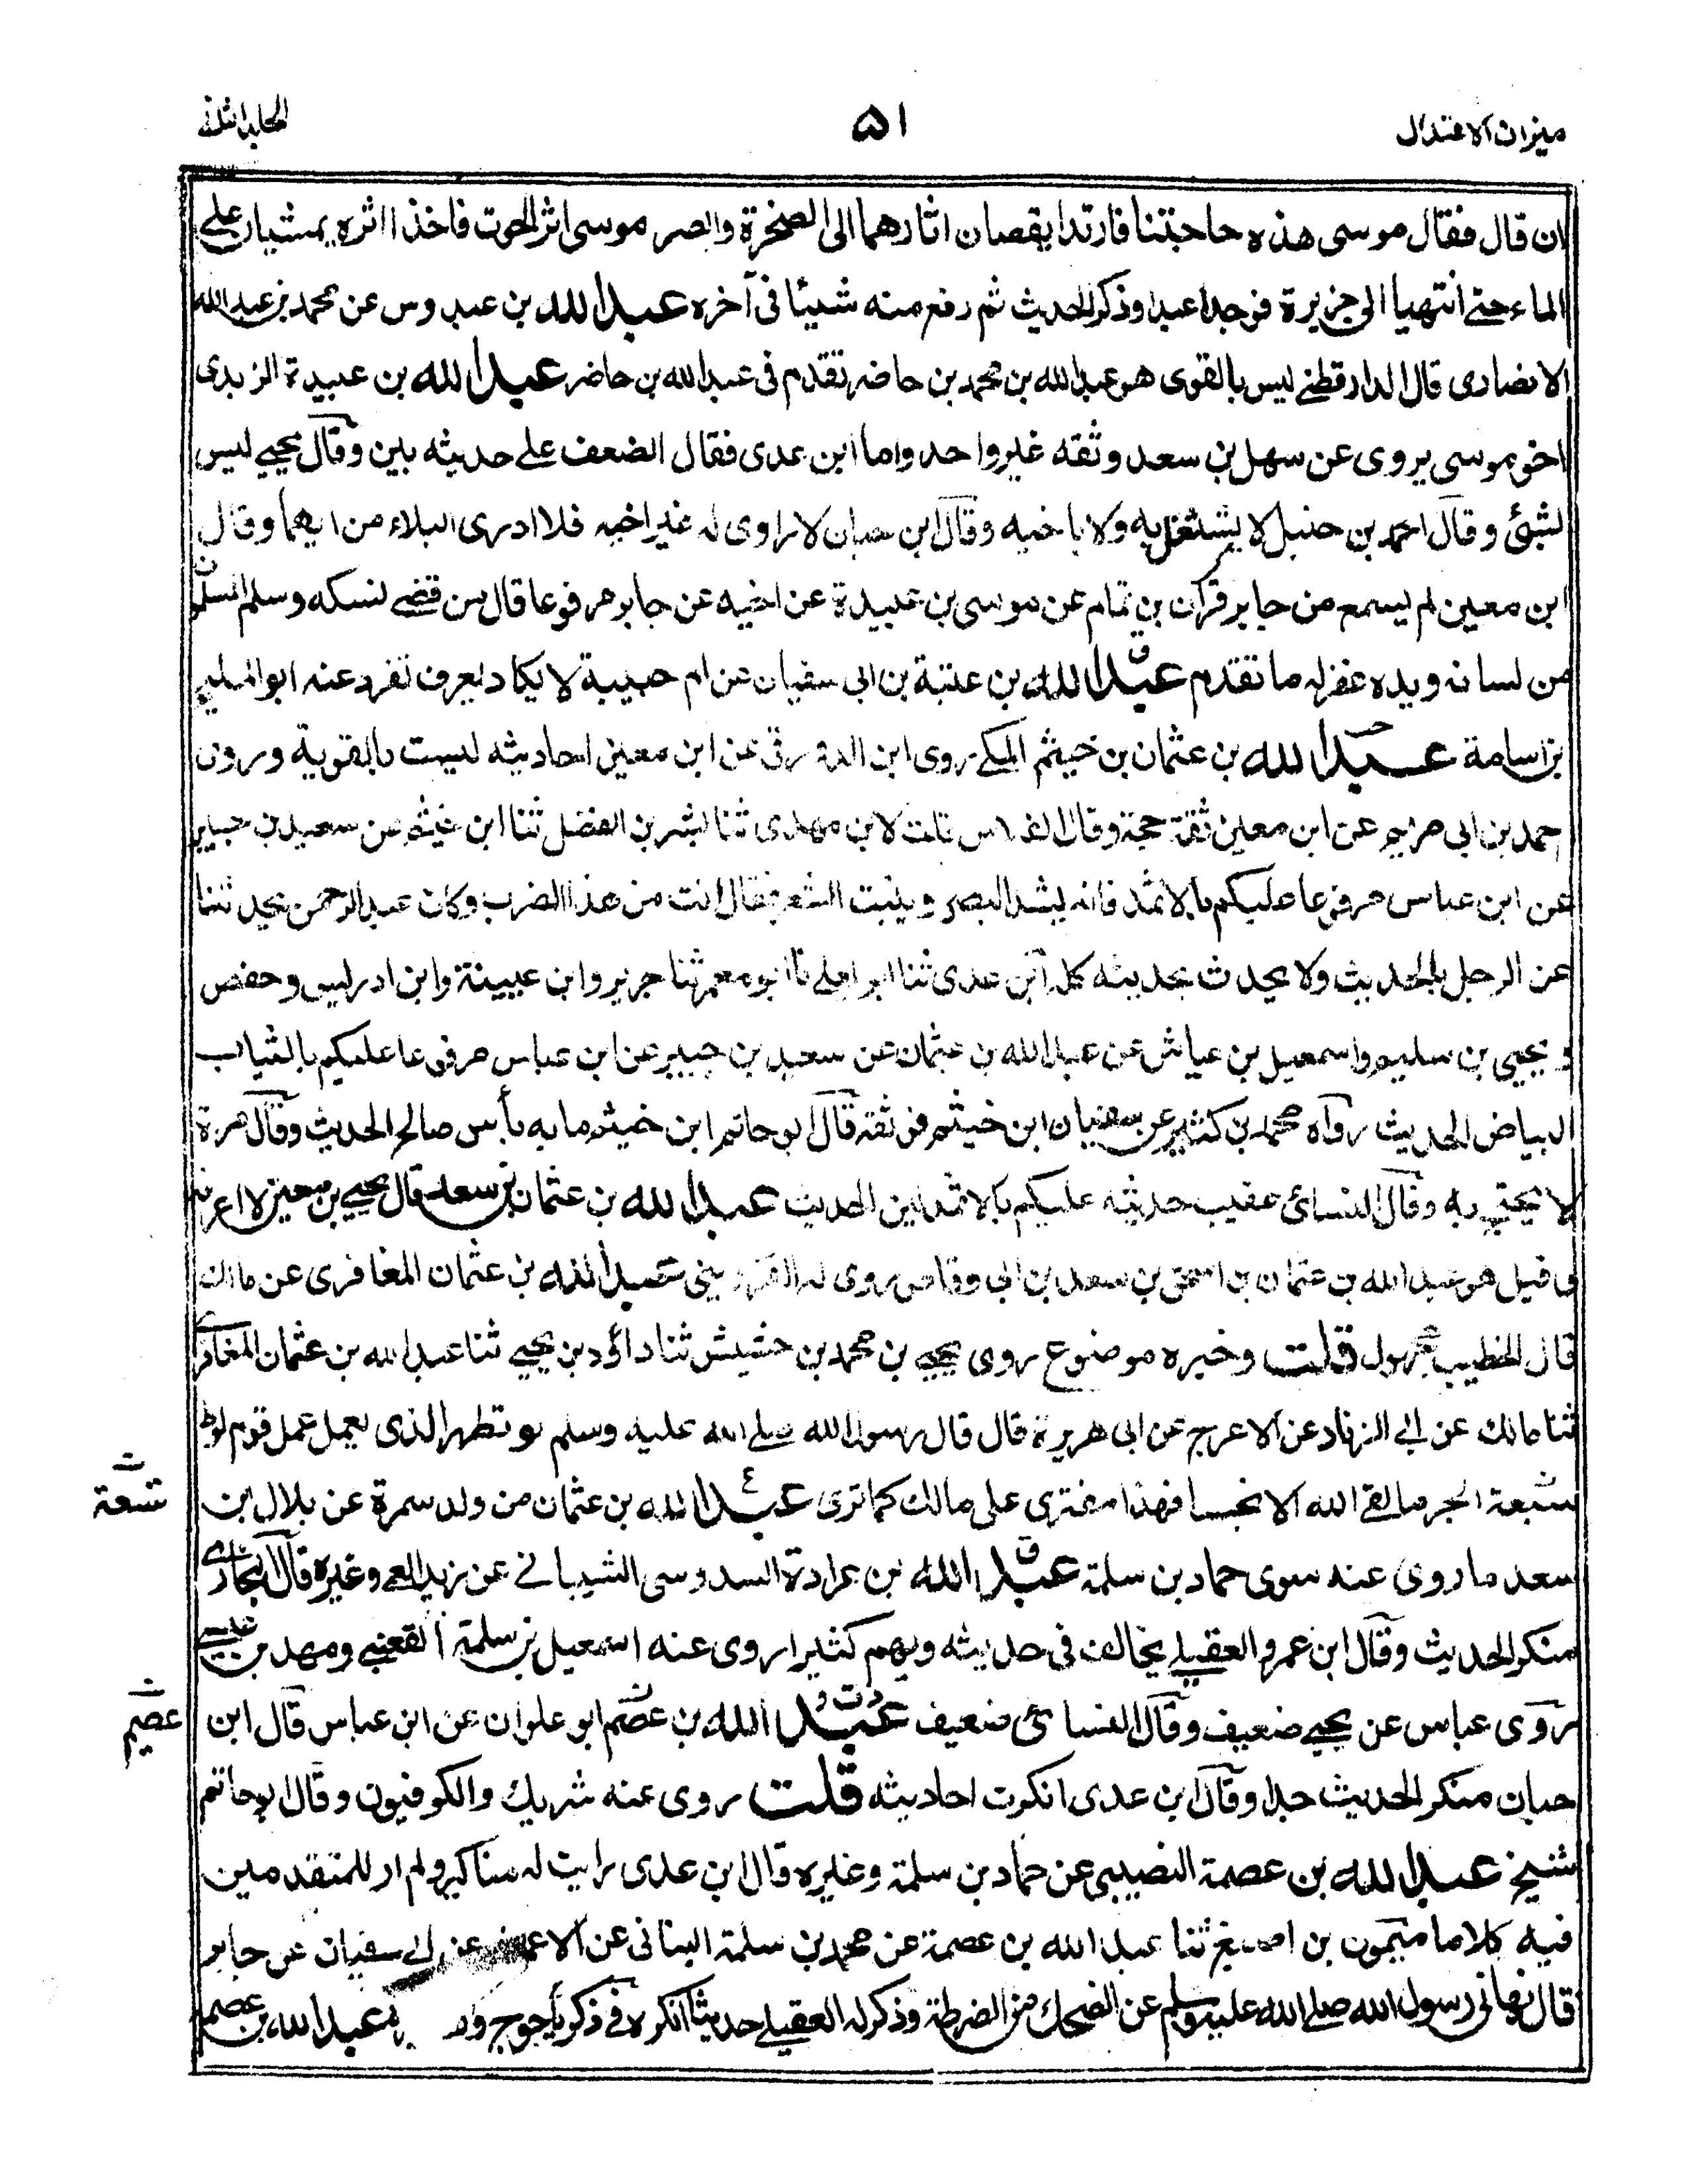 ميزان الاعتدال
٥١
المجلد الثاني
ان قال فقال موسى هذه حاجتنا فارتدا يقصان اثارهما الى الصخرة وابصر موسى اثر الحوت فاخذا اثره يمشيان على
الماء حتى انتهيا الى جزيرة فوجدا عبدا وذكر الحديث ثم رفع منه شيئا فى آخره عبد الله بن عبدوس عن محمد بن عبد الله
الانصارى قال الدارقطنى ليس بالقوى هو عبد الله بن محمد بن حاضر تقدم فى عبد الله بن حاضر عبد الله بن عبيدة الربذى
اخو موسى يروى عن سهل بن سعد وثقه غير واحد واما ابن عدى فقال الضعف على حديثه بين وقال يحيى ليس
بشئ وقال احمد بن حنبل لا يشتغل به ولا باخيه وقال ابن حبان لا راوى له غير اخيه فلا ادرى البلاء من ايهما وقال
ابن معين لم يسمع من جابر قران بن تمام عن موسى بن عبيدة عن اخيه عن جابر مرفوعا قال من قضى نسكه وسلم المسلمون
من لسانه ويده غفر له ما تقدم عبد الله بن عتبة بن ابى سفيان عن ام حبيبة لا يكاد يعرف تفرد عنه ابو المليح
بن اسامة عبد الله بن عثمان بن خيثم المكى روى ابن الدورقى عن ابن معين احاديثه ليست بالقوية وروى
احمد بن ابى مريم عن ابن معين ثقة حجة وقال الفلاس قلت لابن مهدى ثنا بشر بن المفضل ثنا ابن خيثم عن سعيد بن جبير
عن ابن عباس مرفوعا عليكم بالاثمد فانه يشد البصر وينبت الشعر فقال انت من هذا الضرب وكان عبد الرحمن يحدثنا
عن الرجل بالحديث ولا يحدث بحديثه كله ابن عدى ثنا ابو يعلى نا ابو معمر ثنا جرير وابن عيينة وابن ادريس وحفص
و يحيى بن سليم واسمعيل بن عياش عن عبد الله بن عثمان عن سعيد بن جبير عن ابن عباس مرفوعا عليكم بالثياب
البياض الحديث رواه محمد بن كثير عن سفيان ابن خيثم فوثقه قال ابو حاتم ابن خيثم ما به بأس صالح الحديث وقال مرة
لا يحتج به وقال النسائى عقيب حديثه عليكم بالاثمد لين الحديث عبد الله بن عثمان بن سعد قال يحيى بن معين لا اعرفه
و قيل هو عبد الله بن عثمان بن اسحق بن سعد بن ابى وقاص روى له القزوينى عبد الله بن عثمان المغافرى عن مالك
قال الخطيب مجهول قلت وخبره موضوع روى يحيى بن محمد بن خشيش ثنا داؤد بن يحيى ثنا عبد الله بن عثمان المغافرى
ثنا مالك عن ابى الزناد عن الاعرج عن ابى هريرة قال قال رسول الله صلى الله عليه وسلم لو تطهر الذى يعمل عمل قوم لوط
بسبعة ابحر ما لقى الله الا نجسا فهذا مفترى على مالك كما ترى عبد الله بن عثمان من ولد سمرة عن بلال بن
تسعة
سعد ما روى عنه سوى حماد بن سلمة عبد الله بن عرادة السدوسى الشيبانى عن زيد العمى وغيره قال البخارى
منكر الحديث وقال ابن عمرو العقيلى يخالف فى حديثه ويهم كثيرا روى عنه اسمعيل بن سلمة القعنبى ومهد بن عيسى
روى عباس عن يحيى ضعيف وقال النسائى ضعيف عبد الله بن عصم ابو علوان عن ابن عباس قال ابن
عصيم
حبان منكر الحديث جدا وقال ابن عدى انكرت احاديثه قلت روى عنه شريك والكوفيون وقال ابو حاتم
شيخ عبد الله بن عصمة النصيبى عن حماد بن سلمة وغيره قال ابن عدى رايت له مناكير ولم ار للمتقدمين
فيه كلاما ميمون بن اصبغ ثنا عبد الله بن عصمة عن محمد بن سلمة البنانى عن الاعمش عن ابى سفيان عن جابر
قال نهانى رسول الله صلى الله عليه وسلم عن الضحك من الضرطة وذكر له العقيلى حديثا انكره فى ذكر يأجوج عبد الله بن عصمة